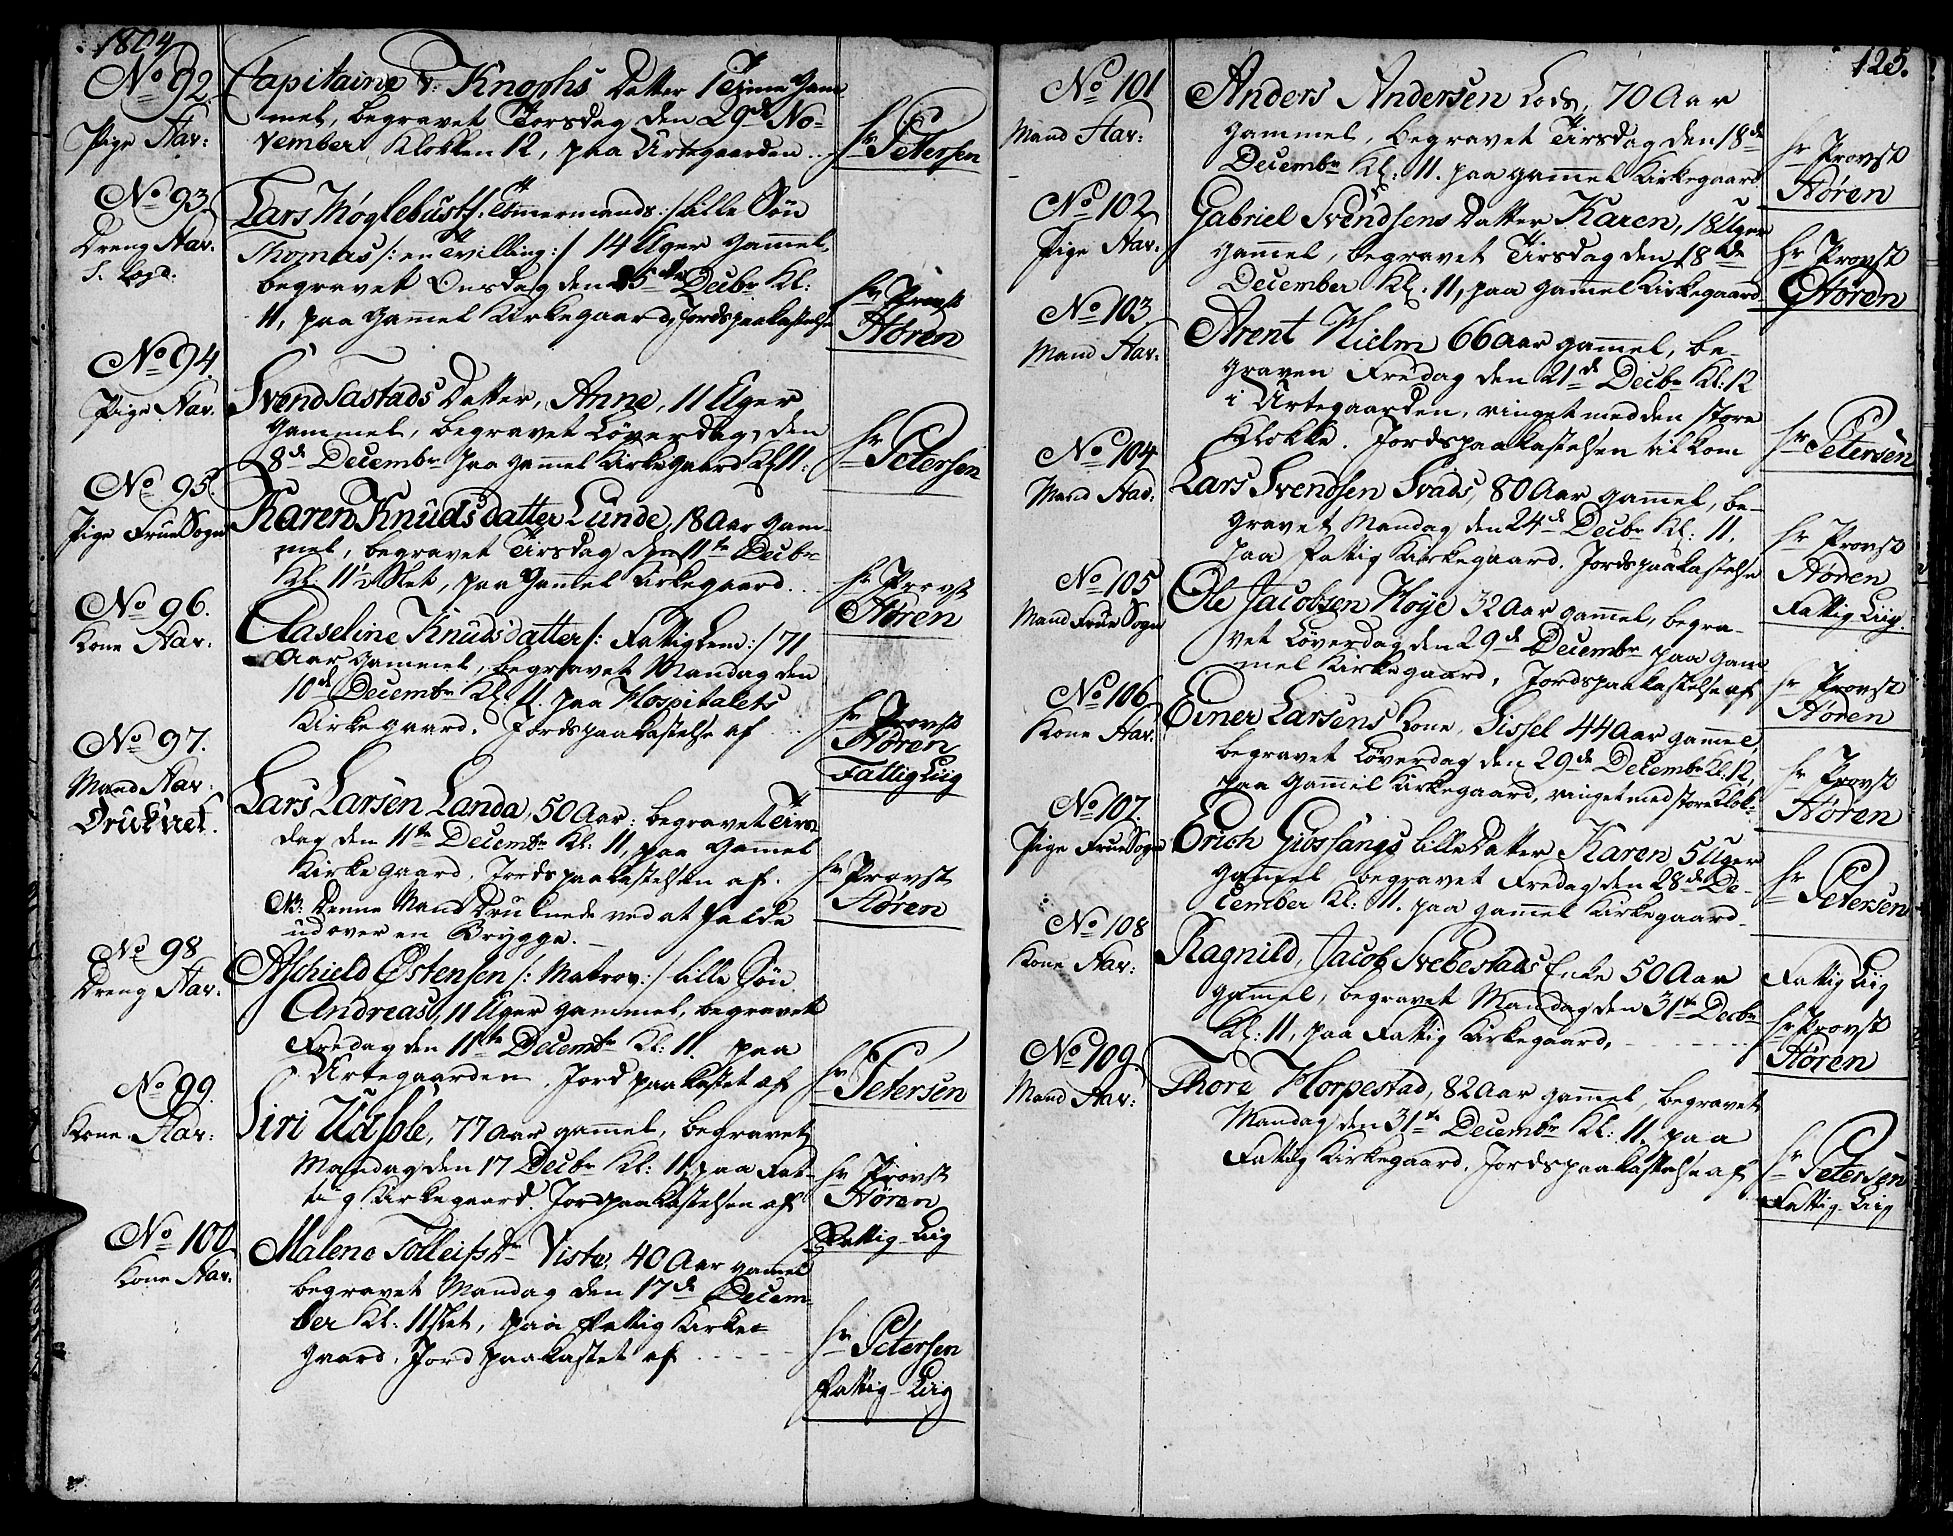 1804
No 92.
Pige Hav:
Capitaine v: Knophs Datter 1 Time Gam
mel, begravet Torsdag den 29de No-
vember Klokken 12, paa Urtegaarden ..
Hr Petersen
No 93
Dreng Hav.
Lars Møglebust /: Tømermands :/ Lille Søn
Thomas /: en Tvilling :/ 14 Uger Gammel,
begravet Onsdag den 5te Decbr Kl:
11, paa Gammel Kirkegaard, Jordspaakastelse
Hr Provst
Høren
No 94.
Pige Hav.
Svend Tastads Datter, Anne, 11 Uger
Gammel, begravet Løverdag, den
8de Decembr paa Gamel Kirkegaard Kl 11:
Hr Petersen
No 95.
Pige Frue Sogn
Karen Knudsdatter Lunde, 18 Aar Gam-
mel, begravet Tirsdag den 11te Decbr
Kl: 11½ Slet, paa Gamel Kirkegaard ...
Hr Provst
Høren
No 96.
Kone Hav.
Aaseline Knudsdatter /: Fattig Lem :/ 71
Aar Gammel, begravet Mandag den
10de Decembr Kl. 11. paa Hospitalets
Kirkegaard. Jordspaakastelse af ...
Hr Provst
Høren
Fattig Liig
No 97.
Mand Hav:
Druknet.
Lars Larsen Landa, 50 Aar: begravet Tirs
dag den 11te Decembr Kl: 11, paa Gammel
Kirkegaard. Jordspaakastelsen af.
NB: Denne Mand Druknede ved at falde
ud over en Brygge. —
Hr Provst
Høren
No 98
Dreng Hav:
Aschield Østensen /: Matros :/ Lille Søn
Andreas, 11 Uger Gammel, begravet
Fredag den 11te Decembr Kl: 11. paa
Urtegaarden. Jord paakastet af
Hr Petersen
No 99.
Kone. Hav:
Siri Udsole, 77 Aar gamel, begravet
Mandag den 17 Decbr Kl: 11, paa Fat-
tig Kirkegaard. Jordpaakastelsen af
Hr Provst
Høren
Fattig Liig
No 100
Kone Hav.
Malene Tolleifsdr Viste, 40 Aar gamel
begravet Mandag den 17de Decem-
ber Kl: 11 slet, paa Fattig Kirke-
gaard. Jord paakastet af - - - -
Hr Petersen
Fattig Liig
125.
No 101
Mand Hav:
Anders Andersen Lods, 70 Aar
Gammel, begravet Tirsdag den 18de
Decembr Kl: 11. paa gammel Kirkegaard
Hr Provst
Høren
No 102
Pige Hav.
Gabriel Svendsens Datter Karen, 18 Uger
Gamel, begravet Tirsdag den 18de
December Kl: 11, paa Gamel Kirkegaard
Hr Provst
Høren
No 103
Mand Hav:
Arent Hielm 66 Aar gamel, be-
graven Fredag den 21de Decbr Kl: 12
i Urtegaarden, ringet med den store
Klokke. Jordspaakastelsen til kom
Hr Petersen
No 104
Mand Hav:
Lars Svendsen Svads, 80 Aar gamel, be-
gravet Mandag den 24de Decbr Kl: 11,
paa Fattig Kirkegaard. Jordspaakastelse
Hr Provst
Høren
Fattig Liig.
No 105
Mand Frue Sogn
Ole Jacobsen Høye 32 Aar gamel, begra-
vet Løverdag den 29de Decembr paa Gam
mel Kirkegaard, Jordspaakastelse af
Hr Provst
Høren
No 106
Kone Hav.
Einer Larsens Kone, Sissel 44 Aar gamel,
begravet Løverdag den 29de Decembr Kl: 12,
paa Gammel Kirkegaard, ringet med store Klok:
Hr Provst
Høren
No 107.
Pige Frue Sogn
Erich Gioslangs lille Datter Karen 5 Uger
Gamel, begravet Fredag den 28de De-
cember Kl: 11. paa gamel Kirkegaard
Hr Petersen
No 108
Kone Hav:
Ragnild, Jacob Svebestads Enke 50 Aar
Gamel, begravet Mandag den 31te Decbr
Kl: 11, paa Fattig Kirkegaard, - - - - -
Fattig Liig
Hr Provst
Høren
No 109.
Mand Hav:
Thore Horpestad, 82 Aar gamel, begravet
Mandag den 31te Decembr Kl: 11. paa
Fattig Kirkegaard. Jordspaakastelse af
Hr Petersen
Fattig Liig